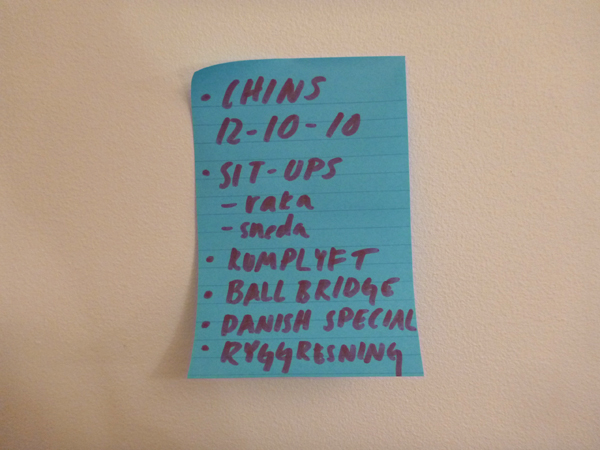 • CHINS
12-10-10
• SIT-UPS
- raka
- sneda
• RUMPLYFT
• BALL BRIDGE
• DANISH SPECIAL
• RYGGRESNING